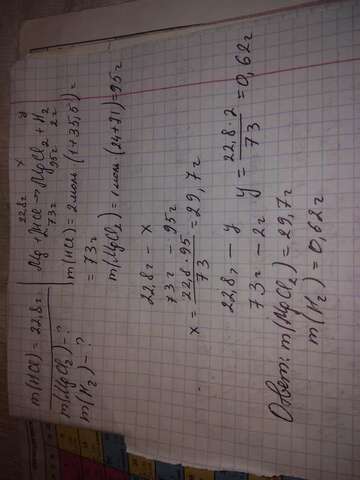 m(HCl) = 22,8г
m(MgCl₂) - ?
m(H₂) - ?
22,8г x y
Mg + 2HCl → MgCl₂ + H₂
73г 95г 2г
m(HCl) = 2моль · (1+35,5) =
= 73г
m(MgCl₂) = 1моль (24+71) = 95г
22,8г - x
73г - 95г
x = 22,8 · 95 / 73 = 29,7г
22,8г - y
73г - 2г
y = 22,8 · 2 / 73 = 0,62г
Ответ: m(MgCl₂) = 29,7г
m(H₂) = 0,62г